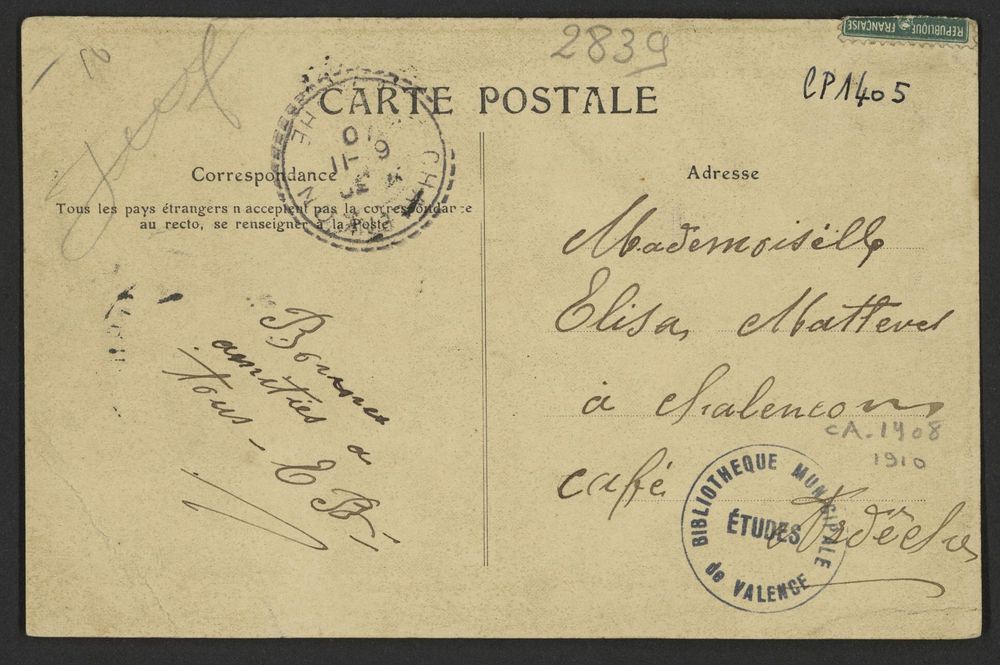 REPUBLIQUE FRANÇAISE
2839
CP1405
CARTE POSTALE
Correspondance
Tous les pays étrangers n acceptent pas la correspondance
au recto, se renseigner à la Poste
Bonnes
amitiés a
tous - E B
Adresse
Mademoiselle
Elisa
à Chalencon
CA-1408
1910
café
Ardèche
BIBLIOTHEQUE MUNICIPALE
ÉTUDES
de VALENCE